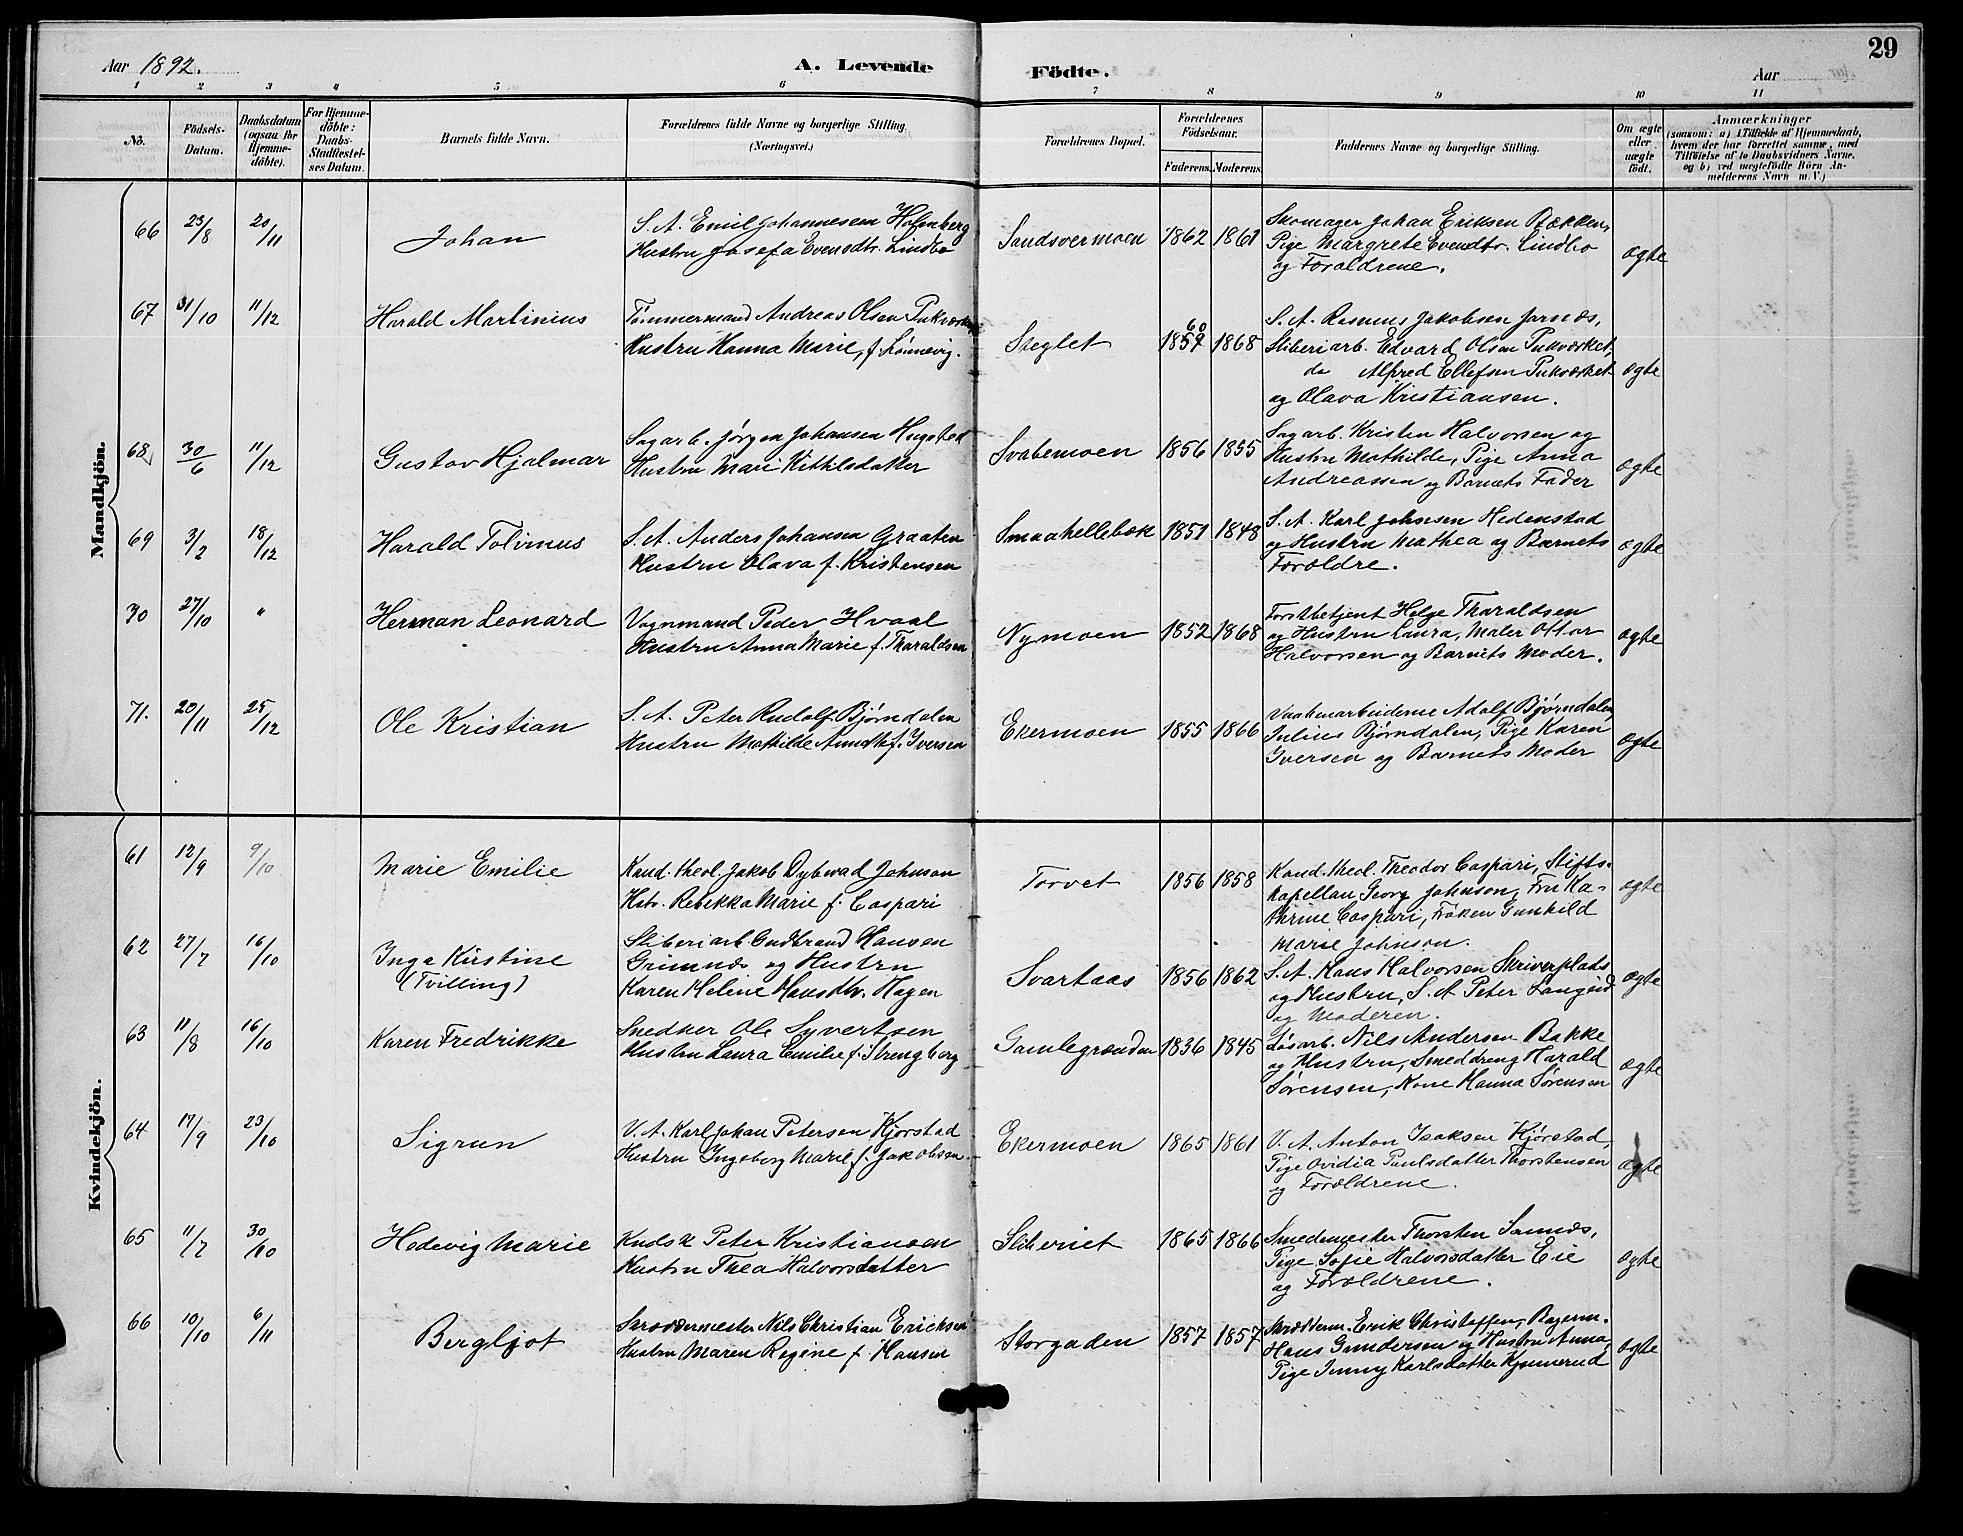 29
Aar 1892. A. Levende Födte. Aar
1 2 3 4 5 6 7 8 9 10 11
No. Födsels-Datum. Daabsdatum (ogsaa for Hjemmedöbte). For Hjemmedöbte: Daabs-Stadfæstelses Datum. Barnets fulde Navn. Forældrenes fulde Navne og borgerlige Stilling. (Næringsvei.) Forældrenes Bopæl. Forældrenes Födselsaar. Faderens. Moderens. Faddernes Navne og borgerlige Stilling. Om ægte eller uægte födt. Anmærkninger (saasom: a) i Tilfælde af Hjemmedaab, hvem der har forrettet samme, med Tilföielse af to Daabsvidners Navne, og b) ved uægtefödte Börn Anmelderens Navn m. V.)
Mandkjön.
66 23/8 20/11 Johan
S. A. Emil Johannesen Holmberg
Hustru Josefa Evensdtr. Lindbo
Sandsvermoen 1862 1861
Skomager Johan Eriksen Bækken,
Pige Margrete Evendtr. Lindbo
og Forældrene.
ægte
67 31/10 11/12 Harald Martinius
Tømmermand Andreas Olsen Pukværket
Hustru Hanna Marie, f. Lønnevig.
Steglet 1857 60 1868
S. A. Rasmus Jakobsen Jarnæs,
Sliberiarb. Edvard Olsen Pukværket,
do Alfred Ellefsen Pukværket
og Olava Kristiansen.
ægte
68 30/6 11/12 Gustav Hjalmar
Sagarb. Jørgen Johansen Hugstad
Hustru Mari Kittilsdatter
Svabemoen 1856 1855
Sagarb. Kristen Halvorsen og
Hustru Mathilde, Pige Anna
Andreassen og Barnets Fader
ægte
69 3/2 18/12 Harald Tolimus
S. A. Anders Johansen Graaten
Hustru Olava f. Kristensen
Smaahellebæk 1851 1848
S. A. Karl Johnsen Hedenstad
og Hustru Mathea og Barnets
Forældre.
ægte
30 27/10 " Herman Leonard
Vognmand Peder Hvaal
Hustru Anna Marie f. Tharaldsen
Nymoen 1852 1868
Forstbetjent Helge Tharaldsen
og Hustru Laura, Maler Ottar
Halvorsen og Barnets Moder.
ægte
71. 20/11 25/12 Ole Kristian
S. A. Peter Rudolf Bjørndalen
Hustru Mathilde f. Iversen
Ekermoen 1855 1866
Vaabenarbeiderne Adolf Bjørndalen,
Julius Bjørndalen, Pige Karen
Iversen og Barnets Moder
ægte
Kvindekjön.
61 12/9 9/10 Marie Emilie
Kand. theol. Jakob Dybwad Johnson
Hstr. Rebekka Marie f. Caspari
Torvet 1856 1858
Kand. theol. Theodor Caspari, Stifts-
kapellan Georg Johnson, Fru Ka-
thrine Caspari, Frøken Gunhild
Marie Johnson.
ægte
62 27/7 16/10 Inga Kirstine
(Tvilling)
Sliberiarb. Gudbrand Hansen
Grimnæs og Hustru
Karen Helene Hansdtr. Hagen
Svartaas 1856 1862
S. A. Hans Halvorsen Skriverplads
og Hustru, S. A. Peter Langeid
og Moderen.
ægte
63 11/8 16/10 Karen Fredrikke
Snedker Ole Syvertsen
Hustru Laura Emilie f. Strengberg
Gamlegrænden 1836 1845
Løsarb. Nils Andersen Bakke
og Hustru, Smeddreng Harald
Sørensen, Kone Hanna Sørensen
ægte
64 17/9 23/10 Sigrun
V. A. Karl Johan Petersen Kjørstad
Hustru Ingeborg Marie f. Jakobsen.
Ekermoen 1865 1861
V. A. Anton Isaksen Kjørstad,
Pige Ovidia Paulsdatter Thorstensen
og Forældrene.
ægte
65 11/7 30/10 Hedevig Marie
Kudsk Peter Kristiansen
Hustru Thea Halvorsdatter
Sliberiet 1865 1866
Smedemester Thorsten Sannæs,
Pige Sofie Halvorsdatter Eie
og Forældrene.
ægte
66 10/10 6/11 Bergljot
Skræddermester Nils Christian Ericksen
Hustru Maren Regine f. Hansen
Storgaden 1857 1857
Skrædderm. Erik Christoffersen, Bagerm.
Hans Gundersen og Hustru Anna,
Pige Jenny Karlsdatter Kjennerud
ægte